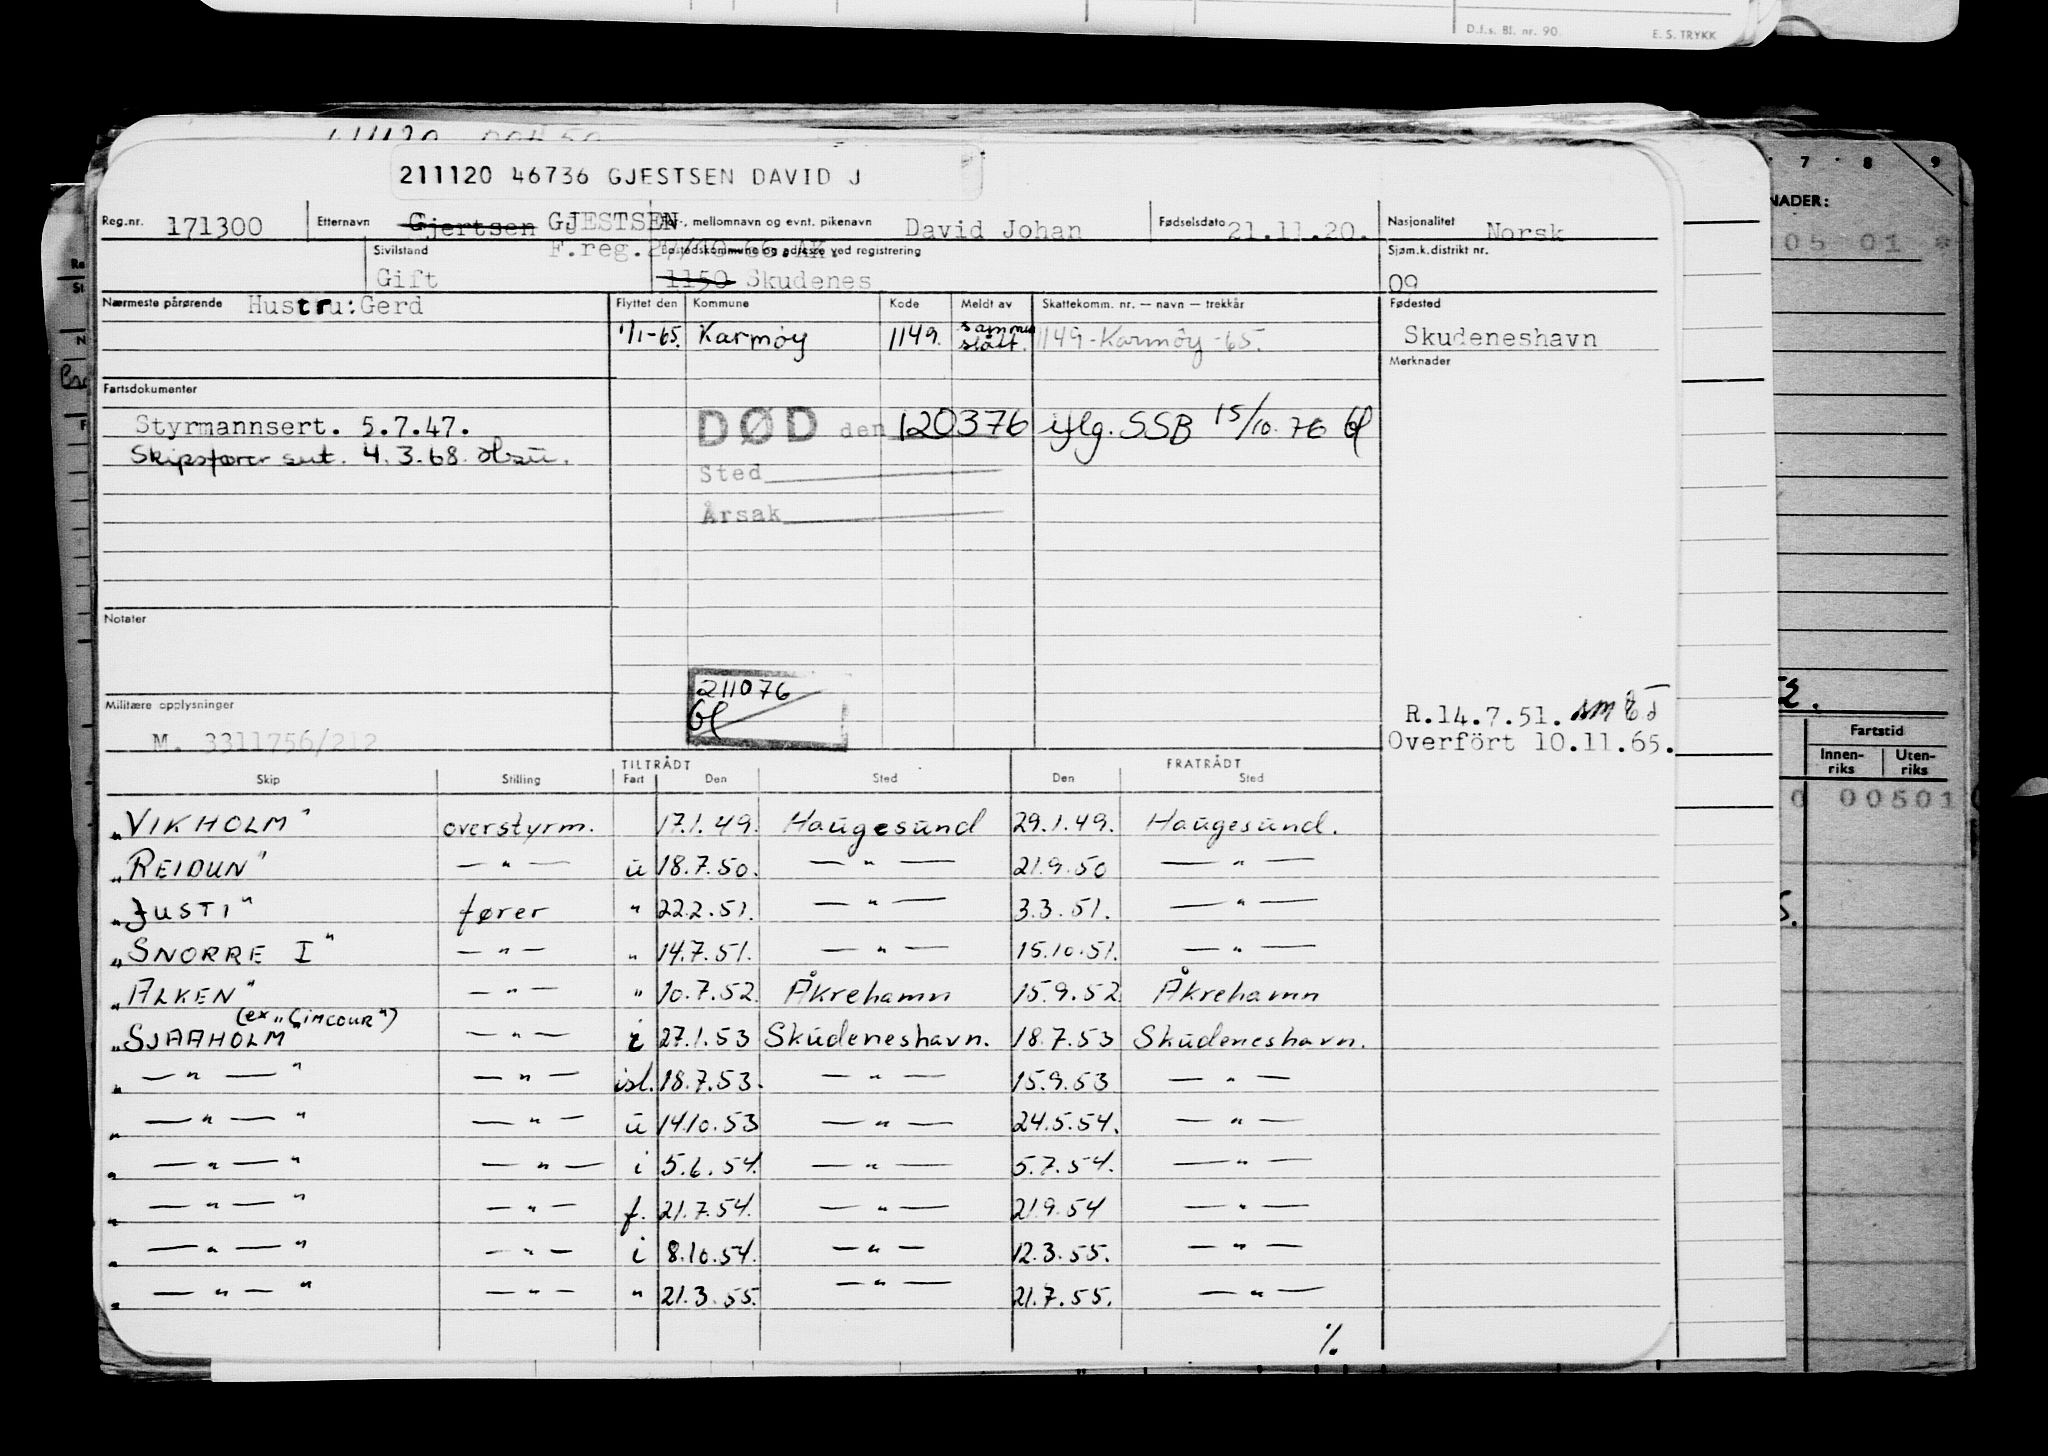 D.f.s. Bl. nr. 90. E. S. TRYKK
211120 46736 GJESTSEN DAVID J
Reg.nr. 171300 Etternavn Gjertsen GJESTSEN mellomnavn og evnt. pikenavn David Johan Fødselsdato 21.11.20. Nasjonalitet Norsk
Sivilstand Gift F.reg. Bostedskommune og adresse ved registrering 1150 Skudenes Sjøm.k.distrikt nr. 09
Nærmeste pårørende Hustru: Gerd Flyttet den Kommune Kode Meldt av Skattekomm. nr. — navn — trekkår Fødested
1/1-65. Karmøy 1149. sammen slått. 1149-Karmøy-65. Skudeneshavn
Merknader
Fartsdokumenter
Styrmannsert. 5.7.47. DØD den 120376 iflg. SSB 15/10.76 bl
Skipsfører sert. 4.3.68.
Sted
Årsak
Notater
211076
bl
Militære opplysninger
M. 3311756/212
R.14.7.51.
Overført 10.11.65.
TILTRÅDT FRATRÅDT
Skip Stilling Fart Den Sted Den Sted
"VIKHOLM" overstyrm. 17.1.49. Haugesund 29.1.49. Haugesund.
"REIDUN" — " — u 18.7.50. — " — 21.9.50 — " —
"JUSTI" fører " 22.2.51. — " — 3.3.51. — " —
"SNORRE I" — " — " 14.7.51. — " — 15.10.51. — " —
"ALKEN" — " — " 10.7.52. Åkrehamn 15.9.52 Åkrehamn
(ex "GIMCOUR")
"SJAAHOLM" — " — i 27.1.53 Skudeneshavn. 18.7.53 Skudeneshavn.
" — " — " — " — isl. 18.7.53. — " — 15.9.53 — " —
" — " — " — " — u 14.10.53 — " — 24.5.54. — " —
" — " — " — " — i 5.6.54. — " — 5.7.54. — " —
" — " — " — " — f. 21.7.54. — " — 21.9.54 — " —
" — " — " — " — i 8.10.54. — " — 12.3.55. — " —
" — " — " — " — " 21.3.55. — " — 21.7.55. — " —
%
7 8 9
NADER:
05 01 *
Fartstid
Innen-riks Uten-riks
0 00501